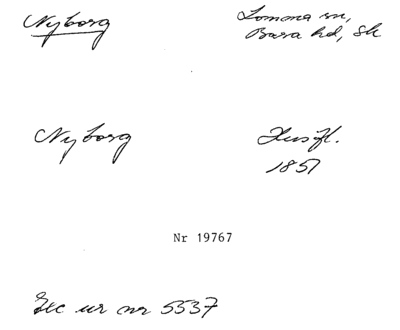 Nyborg
Lomma sn,
Bara hd, Sk
Nyborg
Husfl.
1857
Nr 19767
Exc ur nr 5537